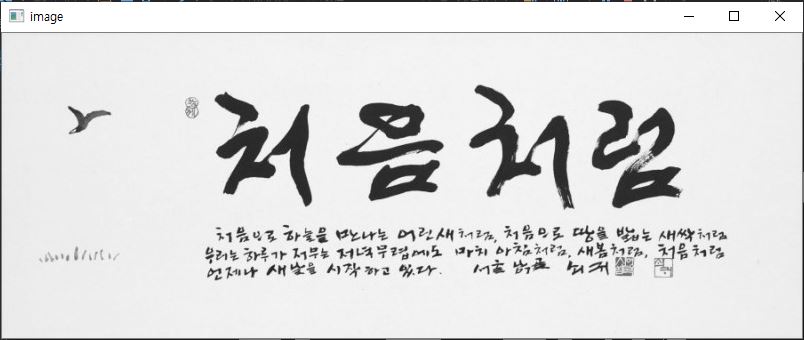 image
처음처럼
처음으로 하늘을 만나는 어린 새처럼, 처음으로 땅을 밟는 새싹처럼
우리는 하루가 저무는 저녁무렵에도 마치 아침처럼, 새봄처럼, 처음처럼
언제나 새날을 시작하고 있다. 쇠귀